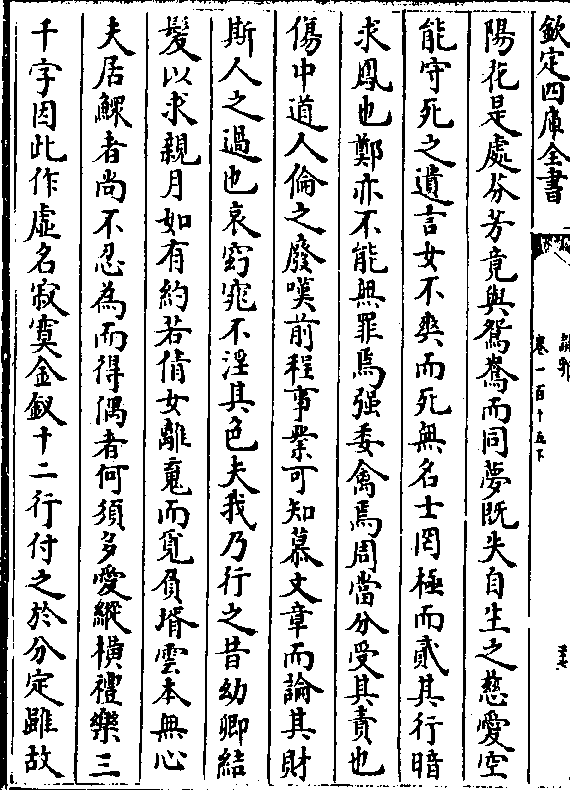 欽定四庫全書
說郛
卷一百十五下
陽花是處芬芳竟與鴛鴦而同夢既失自生之慈愛空
能守死之遺言女不爽而死無名士罔極而貳其行暗
求鳳也鄭亦不能無罪焉强委禽焉周當分受其責也
傷中道人倫之廢嘆前程事業可知慕文章而論其財
斯人之過也哀窈窕不淫其色夫我乃行之昔幼卿結
髮以求親月如有約若倩女離䰟而覓負壻雲本無心
夫居鰥者尚不忍為而得偶者何須多愛縱橫禮樂三
千字因此作虛名寂寞金釵十二行付之於分定雖故